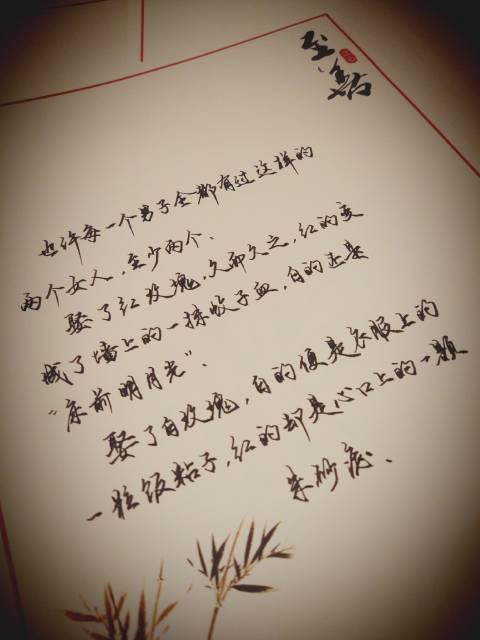 至善
也许每一个男子全都有过这样的
两个女人，至少两个、
娶了红玫瑰，久而久之，红的变
成了墙上的一抹蚊子血，白的还是
“床前明月光”、
娶了白玫瑰，白的便是衣服上的
一粒饭粘子，红的却是心口上的一颗
朱砂痣、